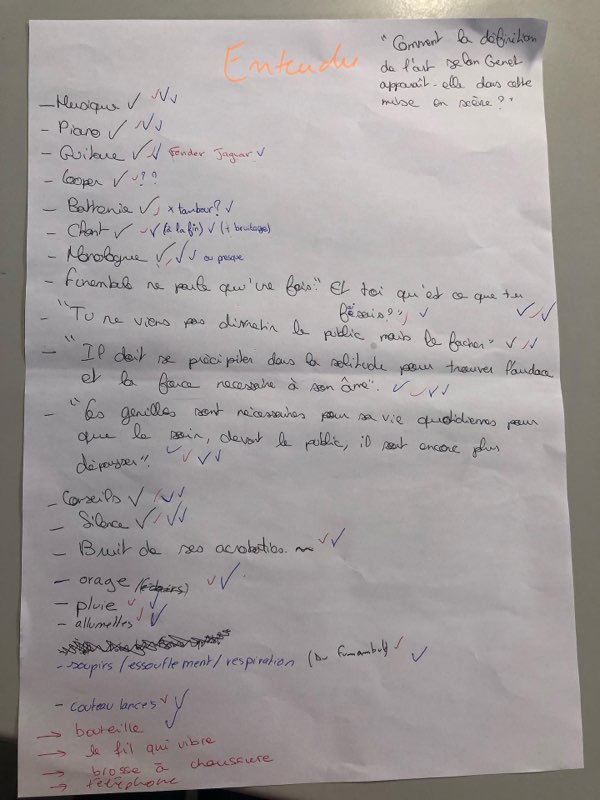 Entendu
"Comment la définition
de l'art selon Genet
apparaît-elle dans cette
mise en scène?"
- Musique ✓ ✓✓✓
- Piano ✓ ✓✓✓
- Guitare ✓ ✓✓ Fender Jaguar ✓
- ✓ ✓??
- Batterie ✓, x tambour? ✓
- Chant ✓ ✓✓ (à la fin) ✓ (+ bruitages)
- Monologue ✓ ✓✓ ✓ ou presque
- Funambule ne parle qu'une fois: "Et toi qu'est ce que tu
fesais?" ✓ ✓ ✓✓✓
- "Tu ne viens pas divertir le public mais le facher" ✓ ✓✓
- "Il doit se précipiter dans la solitude pour trouver l'audace
et la force necessaire à son âme". ✓ ✓✓✓
- "Ces sont nécessaires pour sa vie quotidiennes pour
que le soir, devant le public, il soit encore plus
". ✓✓ ✓✓
- Conseils ✓ ✓✓✓
- Silence ✓ ✓✓✓
- Bruit de ses acrobaties ~ ✓✓
- orage ✓✓
- pluie ✓ ✓
- allumettes ✓✓
- soupirs / essouflement / respiration (du Funambule) ✓ ✓
- couteau lancés ✓ ✓
→ bouteille ✓
→ le fil qui vibre
→ brosse à chaussure
→ téléphone